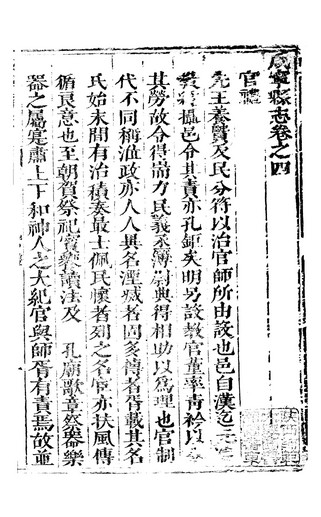 咸寧縣志卷之四
官禮
先王養賢及民分符以治官師所由設也邑自漢迄
攝邑令其責亦孔鉅矣明另設教官董率青衿以
其勞故令得耑力民義丞簿尉典得相助以為理也官制
代不同稱涖政亦人人與名湮烕者固多傳者胥載其名
氏始末間有治積奏最士佩民懷者列之名宦亦扶風傳
循良意也至朝賀祭祀賓讀法及 孔廟歌章祭器樂
器之屬寔肅上下和神人之大紀官與師胥有責焉故並